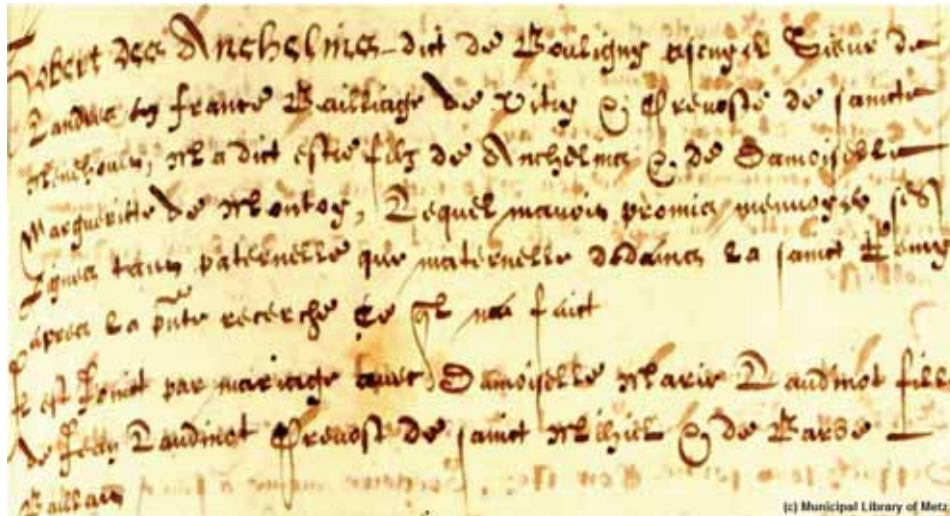 Robert des Anchelins dict de Bouligny escuyer Sieur de
Landres en france Bailliage de Vitry & Prevosté de saincte
Menehoult, M'a dict estre filz de Anchelins & de Damoiselle
Margueritte de Montoy, Lequel m'avoit promis m'envoyer ses
Lignes tant paternelle que maternelle dedans la sainct Remy
apres la pñte recerche Ce ql na faict
Il est Joinct par mariage avec Damoiselle Marie Laudinot fille
de Jean Laudinot Prevost de sainct Mihiel & de Barbe
(c) Municipal Library of Metz